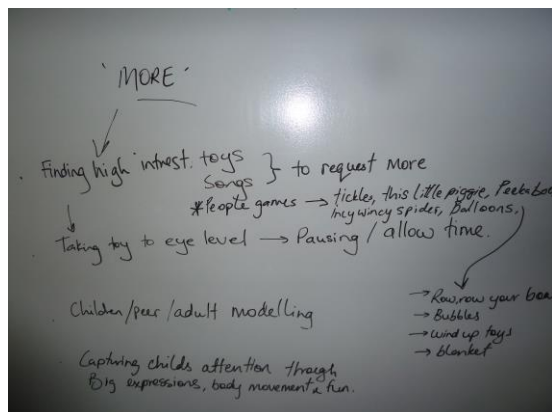 'MORE'
Finding high intrest. toys
Songs
} to request more
*People games → tickles, this little piggie, Peekaboo
Incy wincy spider, Balloons,
Taking toy to eye level → Pausing / allow time.
→ Row, row your boa
→ Bubbles
→ wind up toys
→ blanket
Children/peer/adult modelling
Capturing childs attention through
Big expressions, body movement & fun.